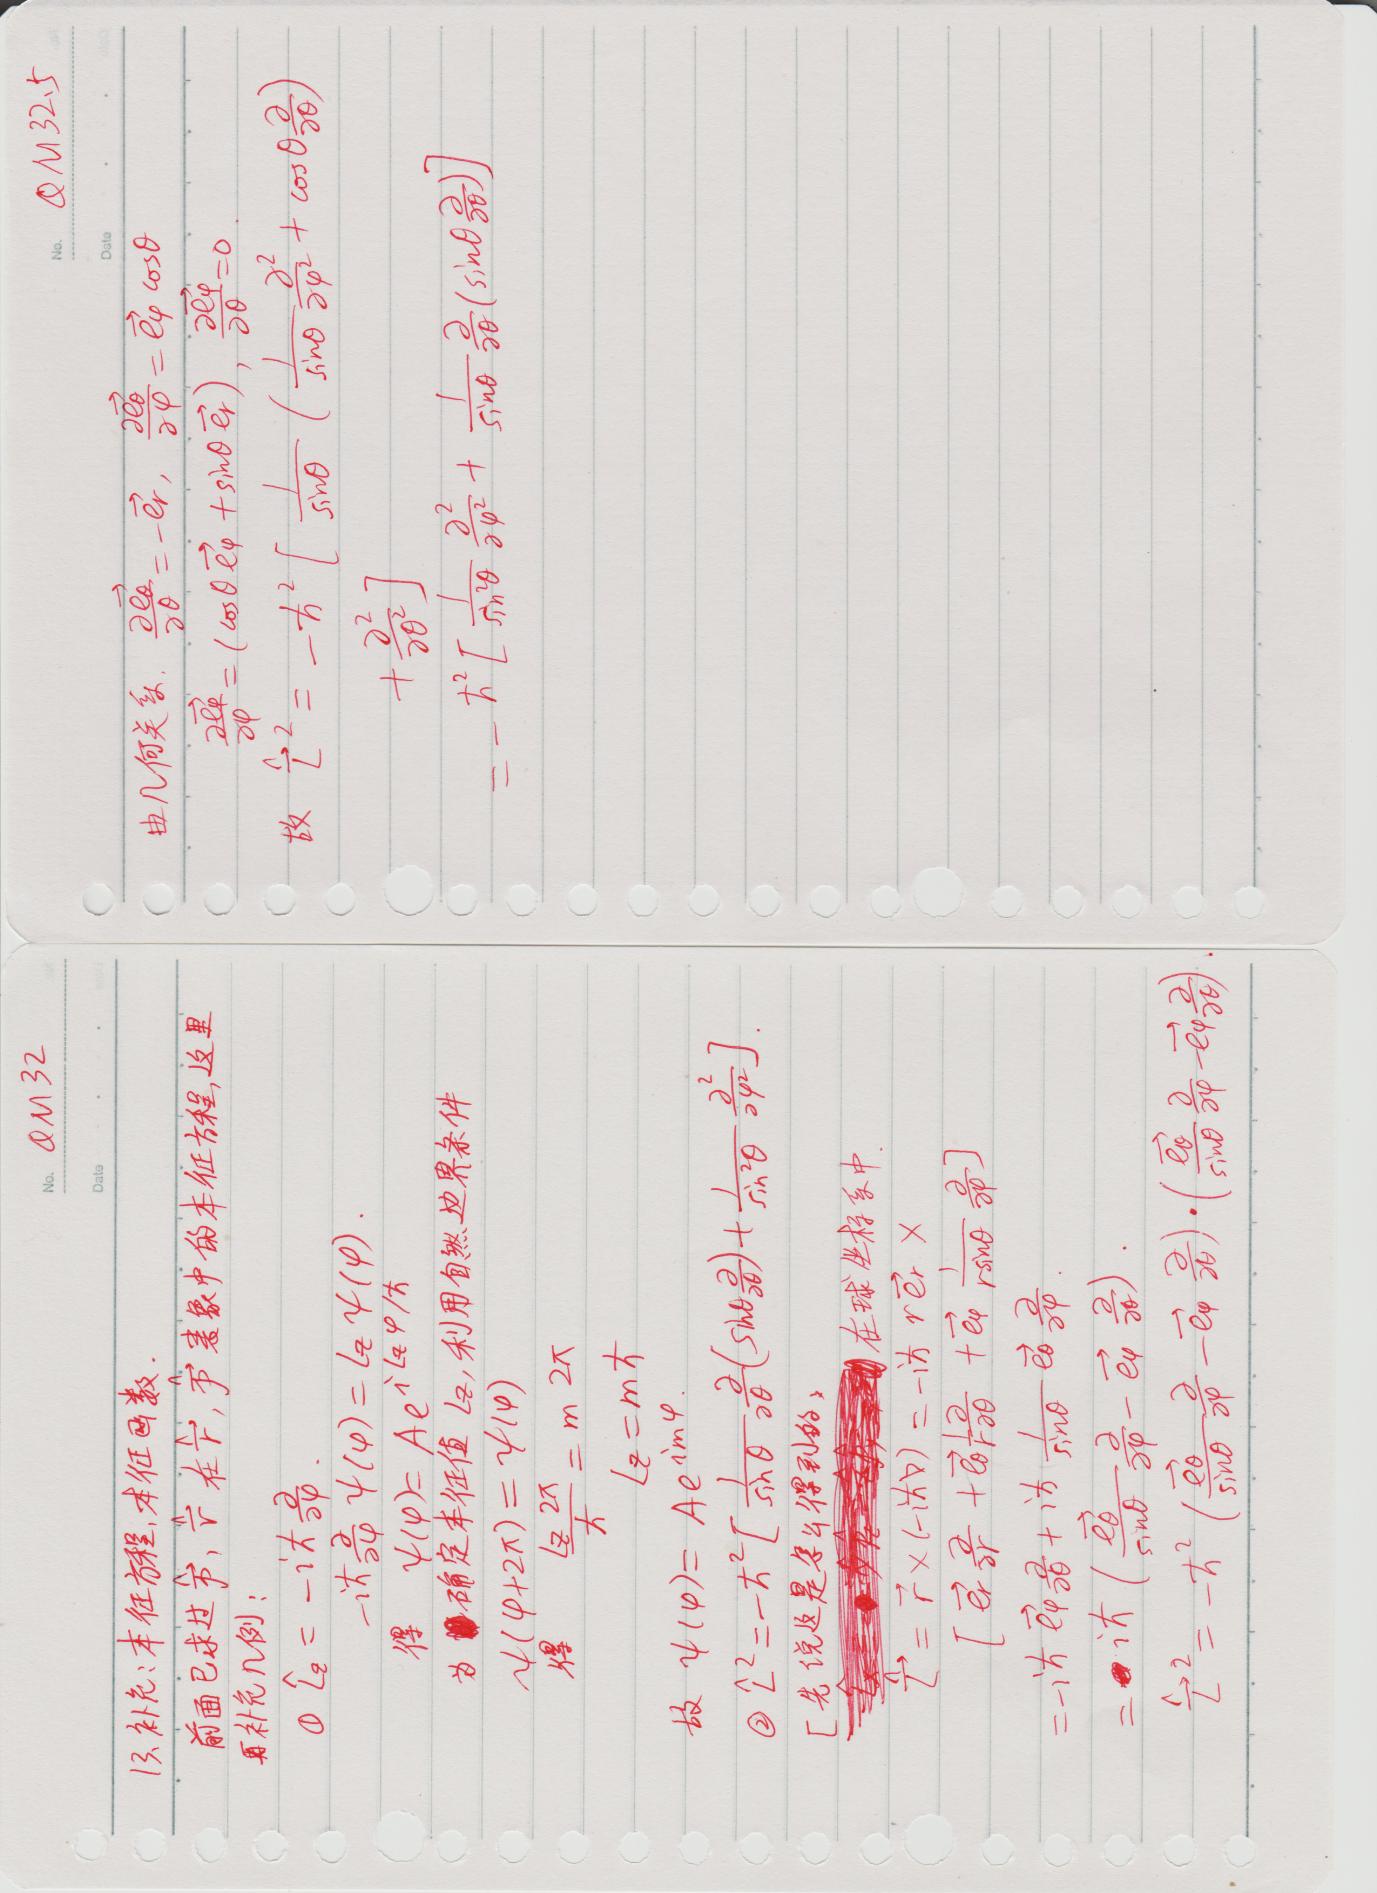 No. QM32
Date
13. 补充：本征方程，本征函数.
前面已求过 \hat{\vec{p}}, \hat{\vec{r}} 在 \hat{\vec{r}}, \hat{\vec{p}} 表象中的本征方程，这里
再补充几例：
① \hat{L}_z = -iħ ∂/∂φ.
-iħ ∂/∂φ ψ(φ) = L_z ψ(φ).
得 ψ(φ) = A e^{i L_z φ/ħ}
为确定本征值 L_z, 利用自然边界条件
ψ(φ+2π) = ψ(φ)
得 \frac{L_z 2π}{ħ} = m 2π
L_z = mħ
故 ψ(φ) = A e^{imφ}.
② \hat{L}^2 = -ħ^2 [ \frac{1}{sinθ} ∂/∂θ (sinθ ∂/∂θ) + \frac{1}{sin^2θ} ∂^2/∂φ^2 ].
[先说这是怎么得到的，
在球坐标系中.
\hat{\vec{L}} = \vec{r} × (-iħ∇) = -iħ r\vec{e}_r ×
[ \vec{e}_r ∂/∂r + \vec{e}_θ \frac{1}{r} ∂/∂θ + \vec{e}_φ \frac{1}{r sinθ} ∂/∂φ ]
= -iħ \vec{e}_φ ∂/∂θ + iħ \frac{1}{sinθ} \vec{e}_θ ∂/∂φ.
= iħ ( \frac{\vec{e}_θ}{sinθ} ∂/∂φ - \vec{e}_φ ∂/∂θ ).
\hat{\vec{L}}^2 = -ħ^2 ( \frac{\vec{e}_θ}{sinθ} ∂/∂φ - \vec{e}_φ ∂/∂θ ) · ( \frac{\vec{e}_θ}{sinθ} ∂/∂φ - \vec{e}_φ ∂/∂θ ).
No. QM32.5
Date
由几何关系. \frac{∂\vec{e}_θ}{∂θ} = -\vec{e}_r, \frac{∂\vec{e}_θ}{∂φ} = \vec{e}_φ cosθ
\frac{∂\vec{e}_φ}{∂φ} = (cosθ \vec{e}_φ + sinθ \vec{e}_r), \frac{∂\vec{e}_φ}{∂θ} = 0.
故 \hat{\vec{L}}^2 = -ħ^2 [ \frac{1}{sinθ} ( \frac{1}{sinθ} ∂^2/∂φ^2 + cosθ ∂/∂θ )
+ ∂^2/∂θ^2 ]
= -ħ^2 [ \frac{1}{sin^2θ} ∂^2/∂φ^2 + \frac{1}{sinθ} ∂/∂θ (sinθ ∂/∂θ) ]